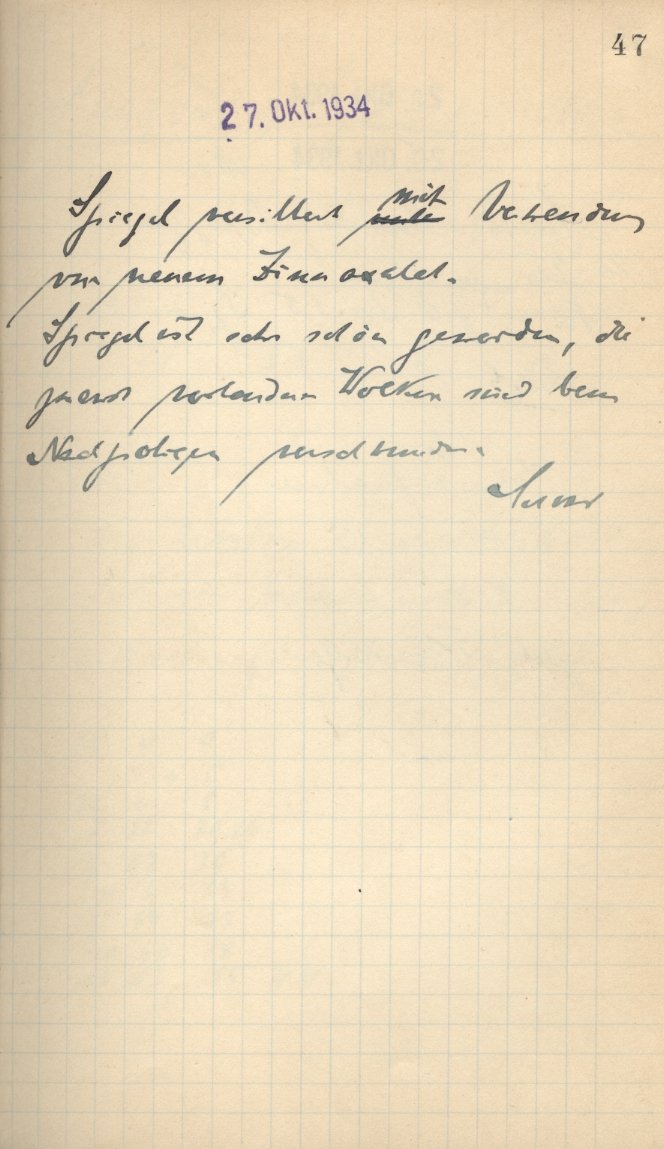 47
27. Okt. 1934
Spiegel versilbert mit Verwendung
von neuem Zinnoxalat.
Spiegel ist sehr schön geworden, die
zuerst vorhandenen Wolken sind beim
Nachpolieren verschwunden.